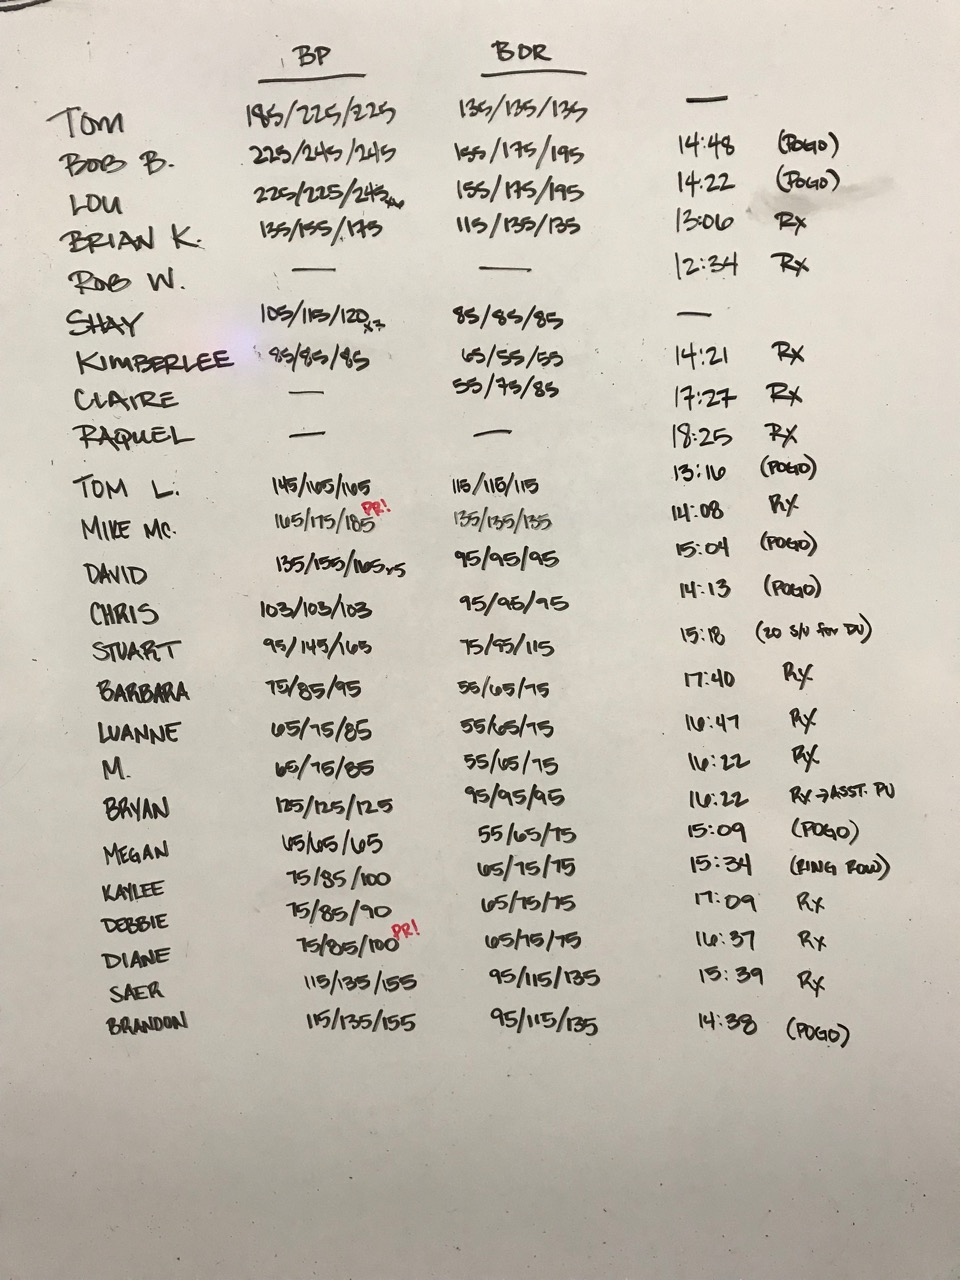 BP BOR
Tom 185/225/225 135/135/135 —
BOB B. 225/245/245 155/175/195 14:48 (POGO)
LOU 225/225/245 155/175/195 14:22 (POGO)
BRIAN K. 135/155/175 115/135/135 13:06 Rx
ROB W. — — 12:34 Rx
SHAY 105/115/120x7 85/85/85 —
KIMBERLEE 85/85/85 65/55/55 14:21 Rx
CLAIRE — 55/75/85 17:27 Rx
RAQUEL — — 18:25 Rx
TOM L. 145/165/165 115/115/115 13:16 (POGO)
MIKE MC. 165/175/185 PR! 135/135/135 14:08 Rx
DAVID 135/155/165x5 95/95/95 15:04 (POGO)
CHRIS 103/103/103 95/95/95 14:13 (POGO)
STUART 95/145/165 75/95/115 15:18 (20 S/U for DU)
BARBARA 75/85/95 55/65/75 17:40 Rx
LUANNE 65/75/85 55/65/75 16:47 Rx
M. 65/75/85 55/65/75 16:22 Rx
BRYAN 125/125/125 95/95/95 16:22 Rx→ASST. PU
MEGAN 65/65/65 55/65/75 15:09 (POGO)
KAYLEE 75/85/100 65/75/75 15:34 (RING ROW)
DEBBIE 75/85/90 65/75/75 17:09 Rx
DIANE 75/85/100 PR! 65/75/75 16:37 Rx
SAER 115/135/155 95/115/135 15:39 Rx
BRANDON 115/135/155 95/115/135 14:38 (POGO)